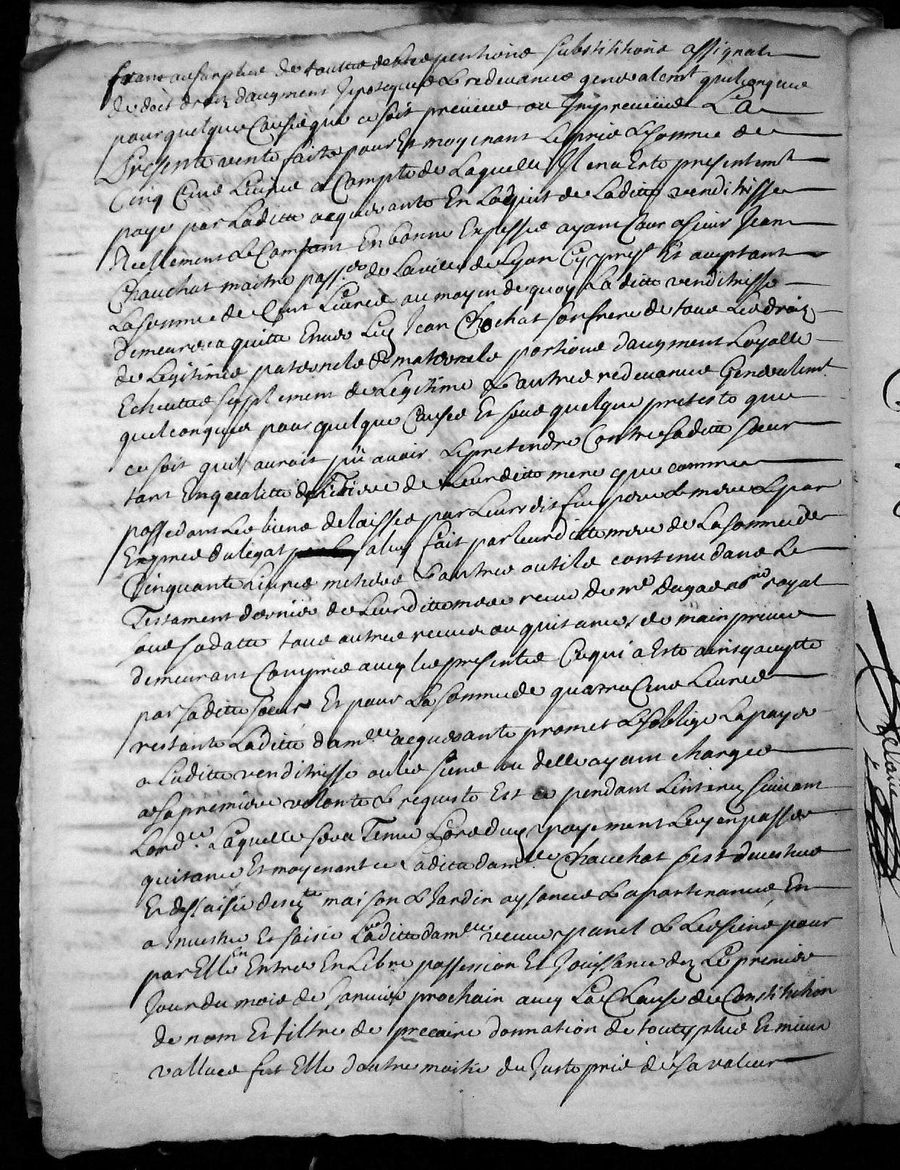 franc au surplus de touttes debtes pentions substitutions assignats
de doit droits daugment hypoteques & redevances generalemt quelconques
pour quelque cause que ce soit preveue ou Impreveue La
presente vente faitte pour Et moyenant Le prix & somme de
Cinq Cens Livres a Compte de Laquelle Il en a Esté presentemt
payé par Laditte acquerante En Laquit de Laditte venditrisse
Reellement & Comptant En bonnes Espesses ayant Cour a sieur Jean
Chauchat maitre pass.er de La ville de Lyon Cy prest Et aceptant
La somme de Cent Livres au moyen de quoy Laditte venditrisse
demeurera quitte Envers Luy Jean Chochat son frere de tous Les droits
de Legitimes paternels & maternels portions daugment Loyalle
Echeuttes suplement de Legitime & autres redevances Generalemt
quelconques pour quelque Cause Et sous quelque pretexte que
ce soit quil auroit pû avoir & pretendre Contre Saditte soeur
tant En qualitté de de Leurditte mere que comme
possedant Les biens delaissés par Leurs dit feu pere & mere & par
Exprès du legat a luy fait par leurditte mere de La somme de
Cinquante Livres meubles & autres outils contenu dans Le
Testament dernier de Leurditte mere receu de me Dugas no.re royal
sous sa datte tous autres receus ou quitances de main privée
demeurant Compris avec les presentes Ce qui a Esté ainsy acepté
par Saditte soeur Et pour La somme de quatre Cens Livres
restante Laditte dam.lle acquerante promet & soblige La payer
a Laditte venditrisse ou les siens ou delle ayant charge
a sa premiere volonté & requeste Et ce pendant Linterest suivant
Lord.ce Laquelle sera Tenue Lors dud payement Luy en passer
quitance Et moyenant ce Laditte dam.lle Chauchat sest devestue
Et dessaisie desd.ttes maison & Jardin aysances & apartenances En
a Investu Et saisie Laditte dam.lle & Les siens pour
par Elle En Entrer En Libre possession Et Jouissance dez Le premier
Jour du mois de Janvier prochain avec La Clause de Constitution
de nom Et tiltre de precaire donnation de touttes plus Et mieux
vallues fut Elle doutre moitié du Juste prix de sa valeur